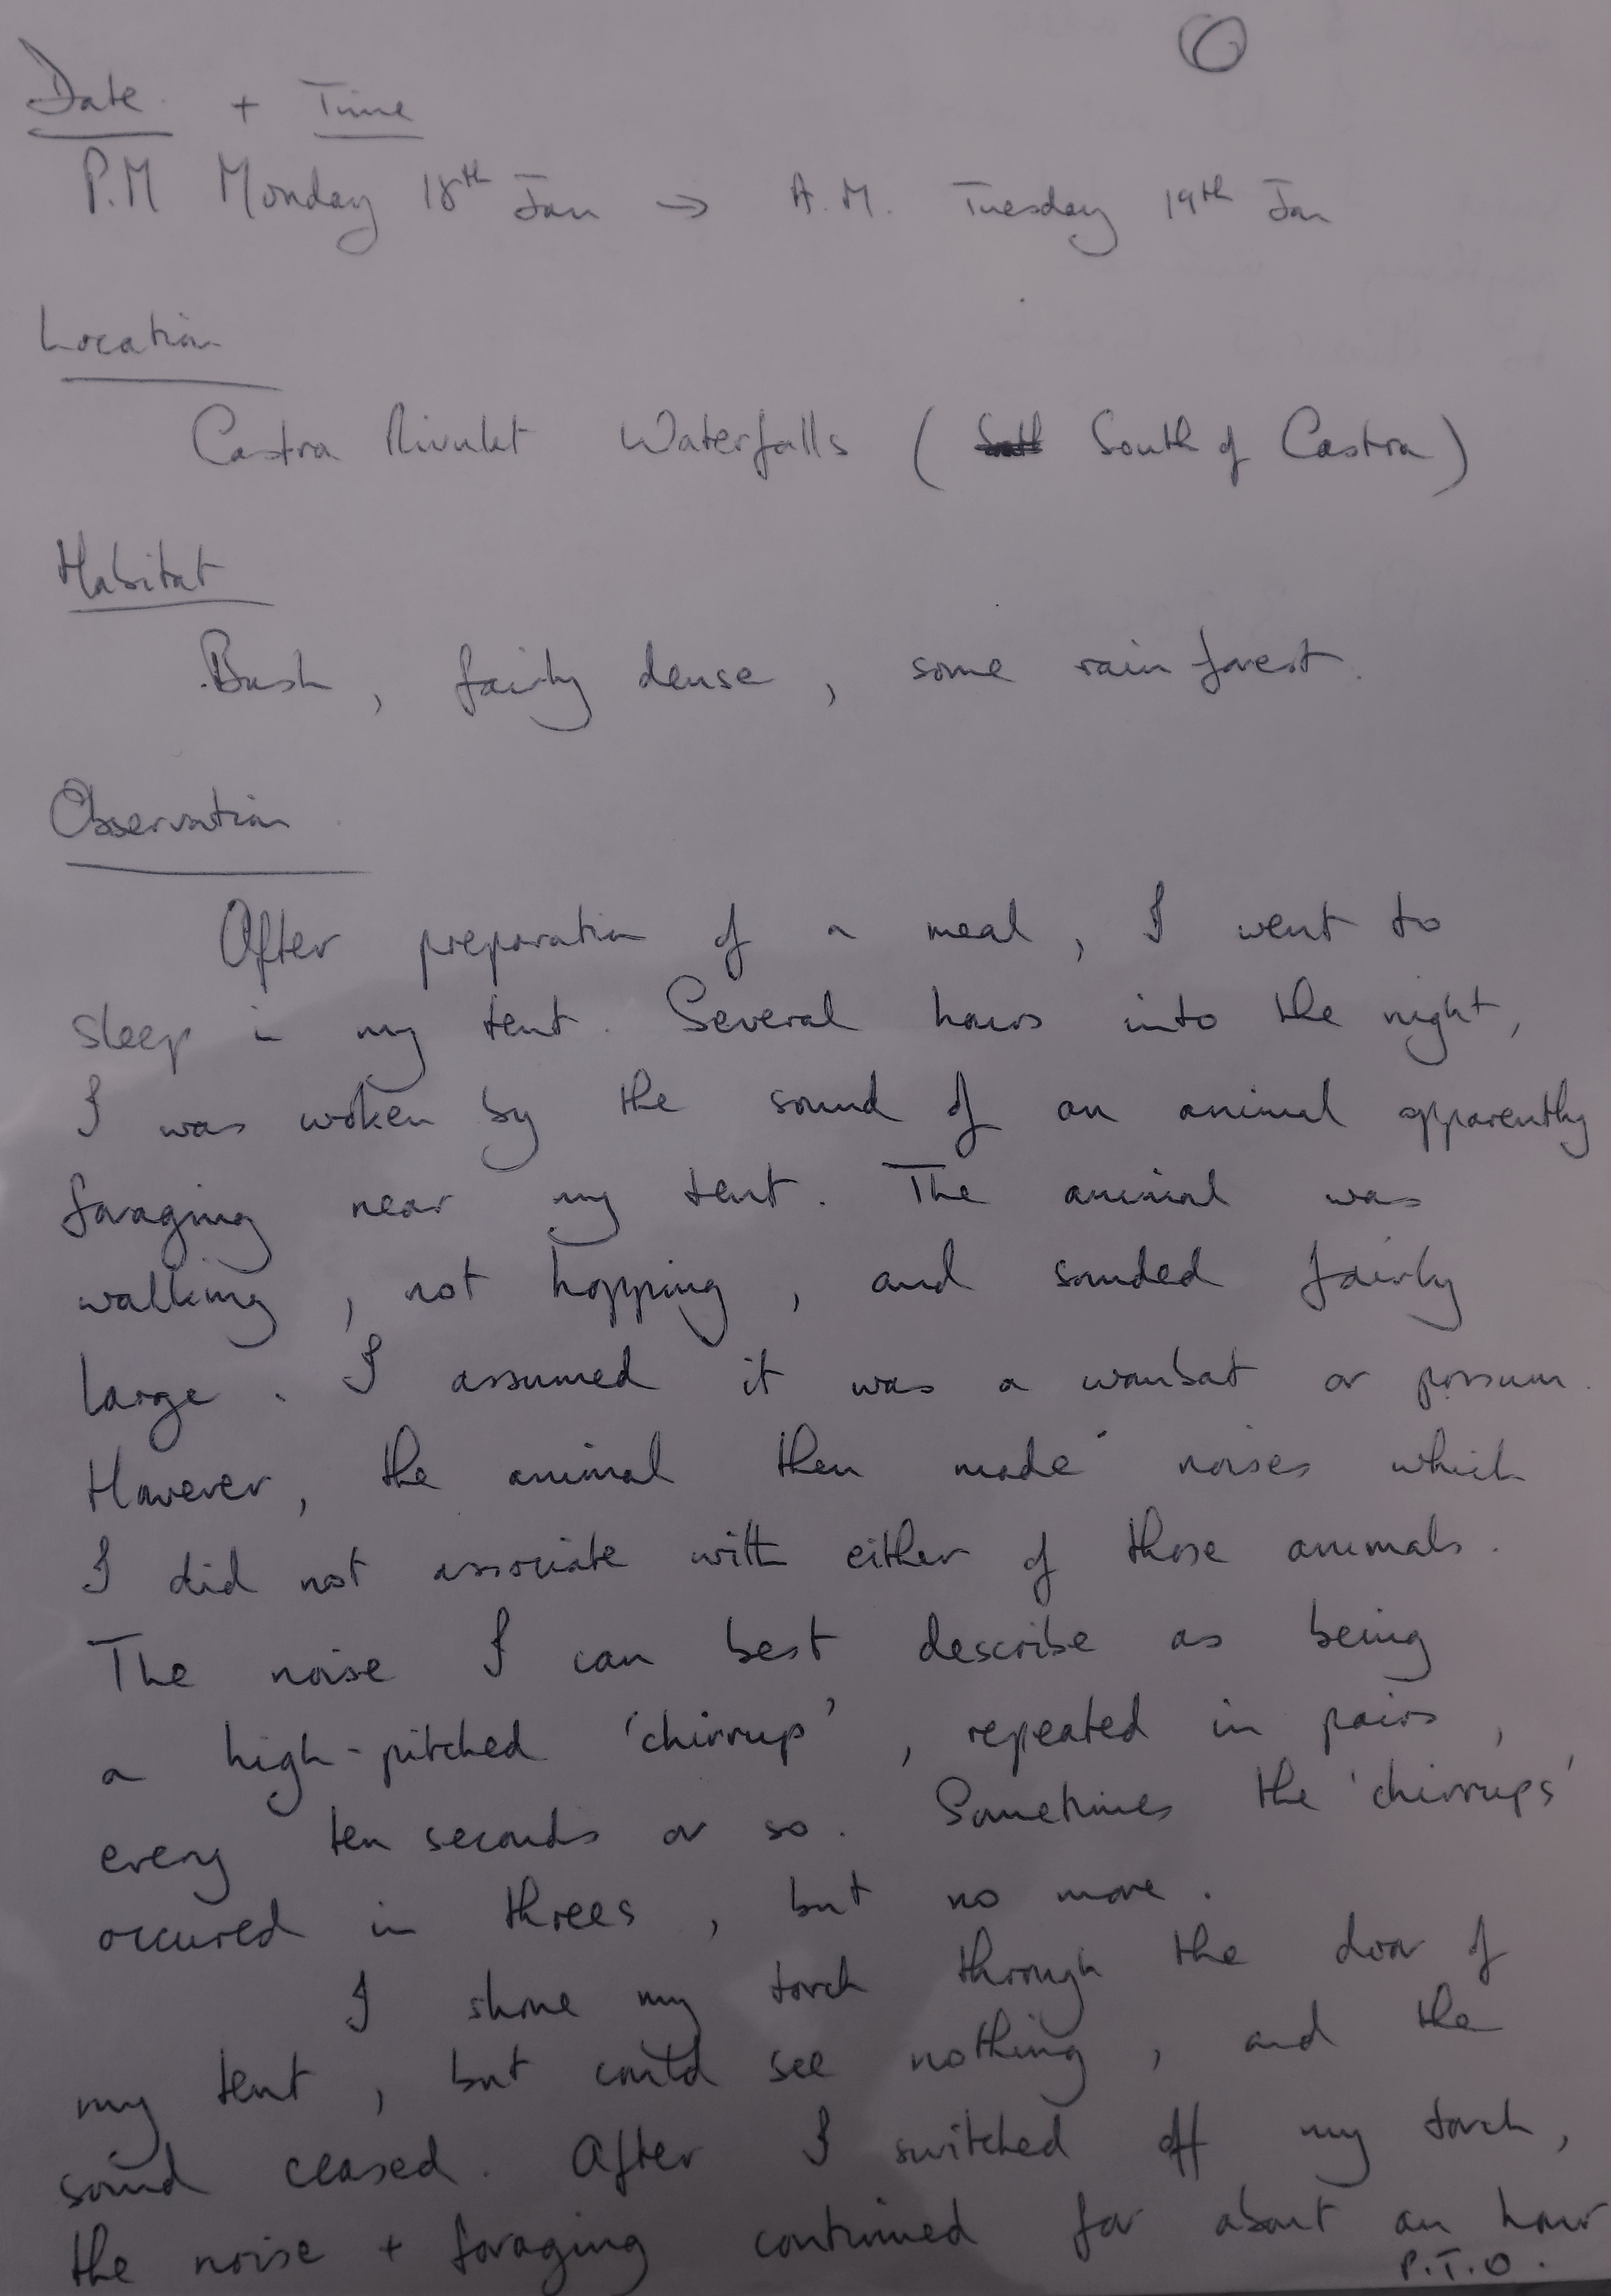 Date + Time
P.M Monday 18th Jan → A.M. Tuesday 19th Jan
Location
Castra Rivulet Waterfalls ( South of Castra)
Habitat
Bush, fairly dense, some rain forest.
Observation
After preparation of a meal, I went to
sleep in my tent. Several hours into the night,
I was woken by the sound of an animal apparently
foraging near my tent. The animal was
walking, not hopping, and sounded fairly
large. I assumed it was a wombat or possum.
However, the animal then made noises which
I did not associate with either of those animals.
The noise I can best describe as being
a high-pitched 'chirrup', repeated in pairs,
every ten seconds or so. Sometimes the 'chirrups'
occured in threes, but no more.
I shone my torch through the door of
my tent, but could see nothing, and the
sound ceased. After I switched off my torch,
the noise + foraging continued for about an hour
P.T.O.